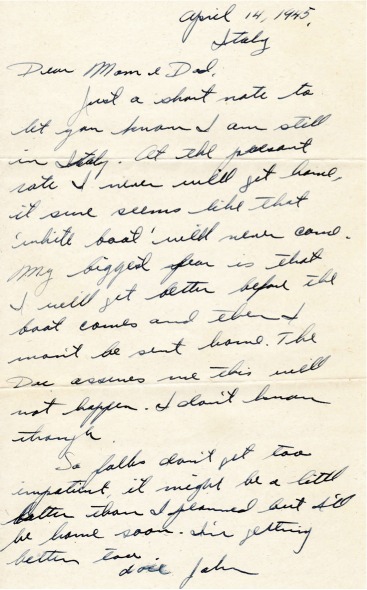 April 14, 1945,
Italy
Dear Mom & Dad,
Just a short note to
let you know I am still
in Italy. At the present
rate I never will get home,
it sure seems like that
'white boat' will never come.
My biggest fear is that
I will get better before the
boat comes and then I
won't be sent home. The
Doc assures me this will
not happen. I don't know
though.
So folks don't get too
impatient, it might be a little
later than I planned but I'll
be home soon. I'm getting
better too.
love John